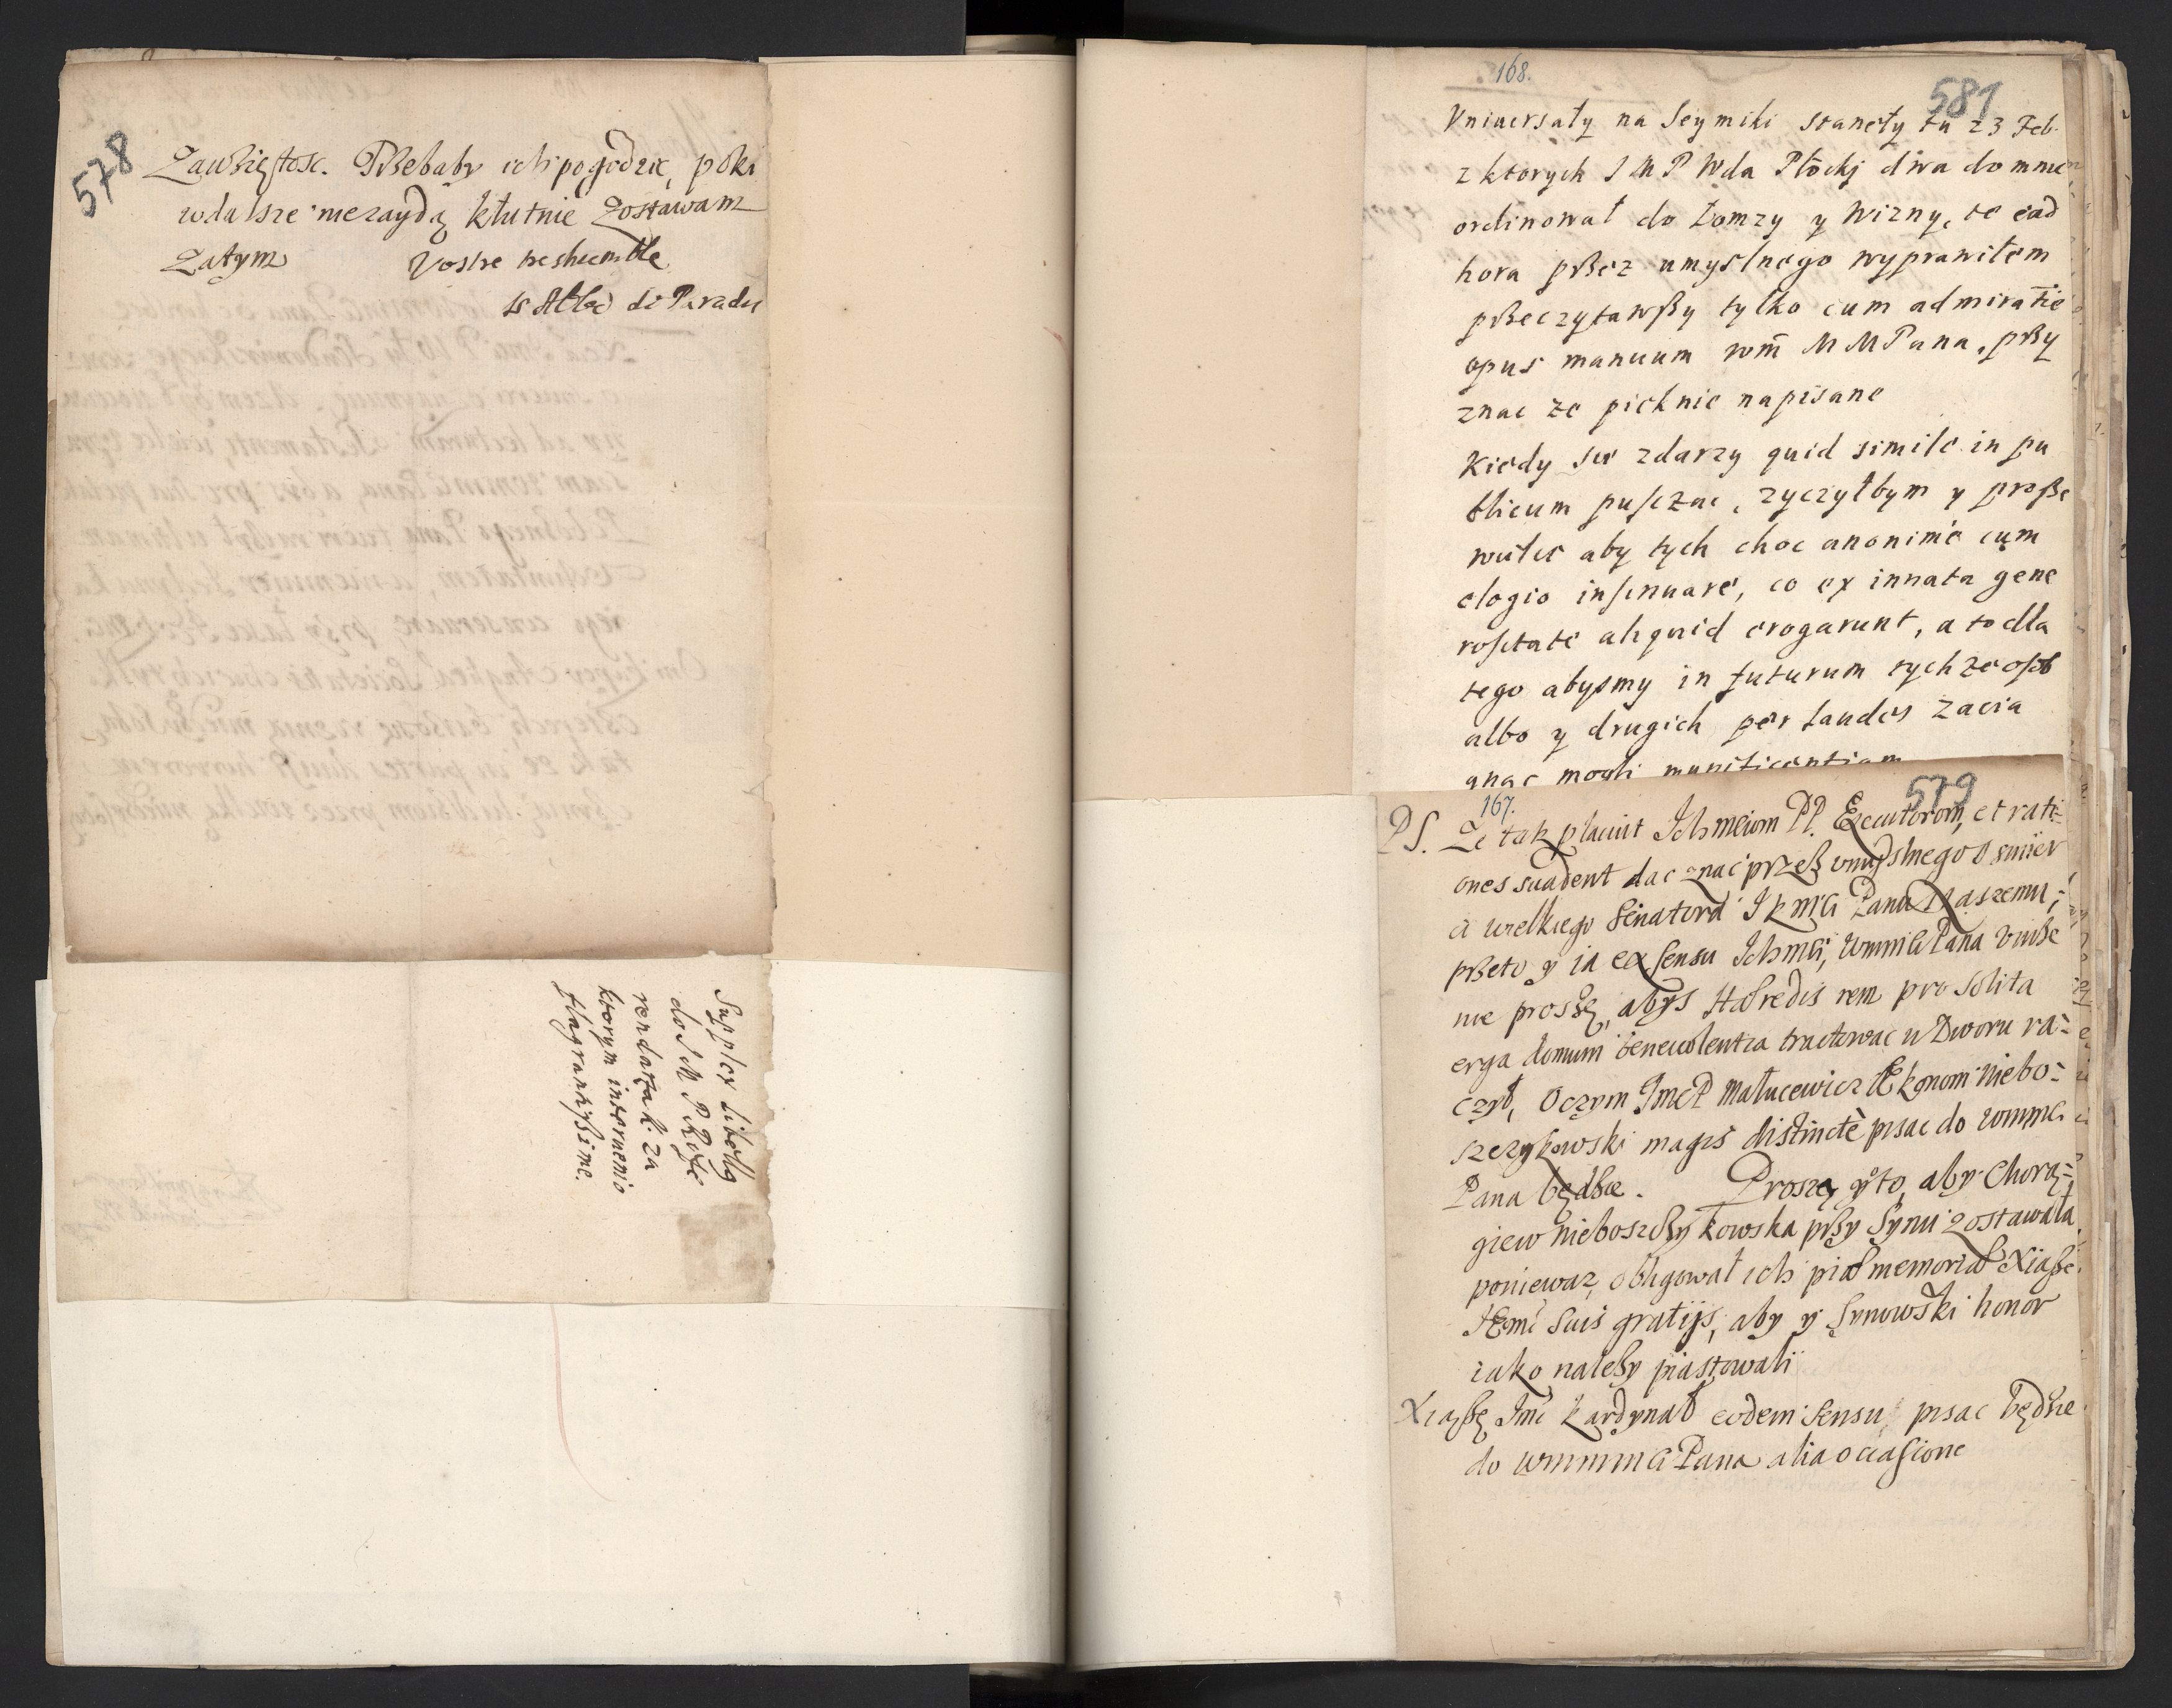 578
Zawziętosc. Trzebaby ich pogodzic, poki
w dalsze nie zaydą kłutnie Zostawam
Zatym Vostre tres humble
Supplex Libellg
do J M P Refe
rendarza k. za
ktorym intervenio
flagrantissime.
168.
581
Vniuersały na Seymiki stanęły tu 23 Feb.
z ktorych J M P Wda Płocky dwa do mnie
ordinował do Łomzy y Wizny, te ead
hora przez umyslnego wyprawiłem
przeczytawszy tylko cum admiratie
opus manuum wm̃ M M Pana, przy
znac ze pieknie napisane
Kiedy sie zdarzy quid simile in pu
blicum pusczac, zyczyłbym y prosze
wielce aby tych choc anonimè cum
elogio insinuare, co ex innata gene
rositate aliquid erogarunt, a to dla
tego abysmy in futurum tychze osob
albo y drugich per laudes zacia
gnac mogli munificentiam
167.
579
PS. Ze tak placuit Ichmciom PP. Executorom, et rati-
ones suadent dac znac przez vmyslnego o smier
ci wielkiego Senatora J k Mci Panu Naszemu;
przeto y ia ex sensu Ichmci, wmmci Pana vniże
nie proszę, abys Haeredis rem pro solita
erga domum beneuolentia tractowac u Dworu ra-
czył, O czym Jmc P Matucewicz Ekonom niebo-
szczykowski magis distinctè pisac do wmmci
Pana będzie. Proszę y o to, aby Chorą-
giew nieboszczykowska przy Synu zostawała
poniewaz obligował ich piae memoriae Xiąże
JEmć suis gratijs, aby y Synowski honor
iako należy piastowali
Xiążę Jmć kardynał eodem sensu pisac będzie
do wmmmci Pana alia occasione